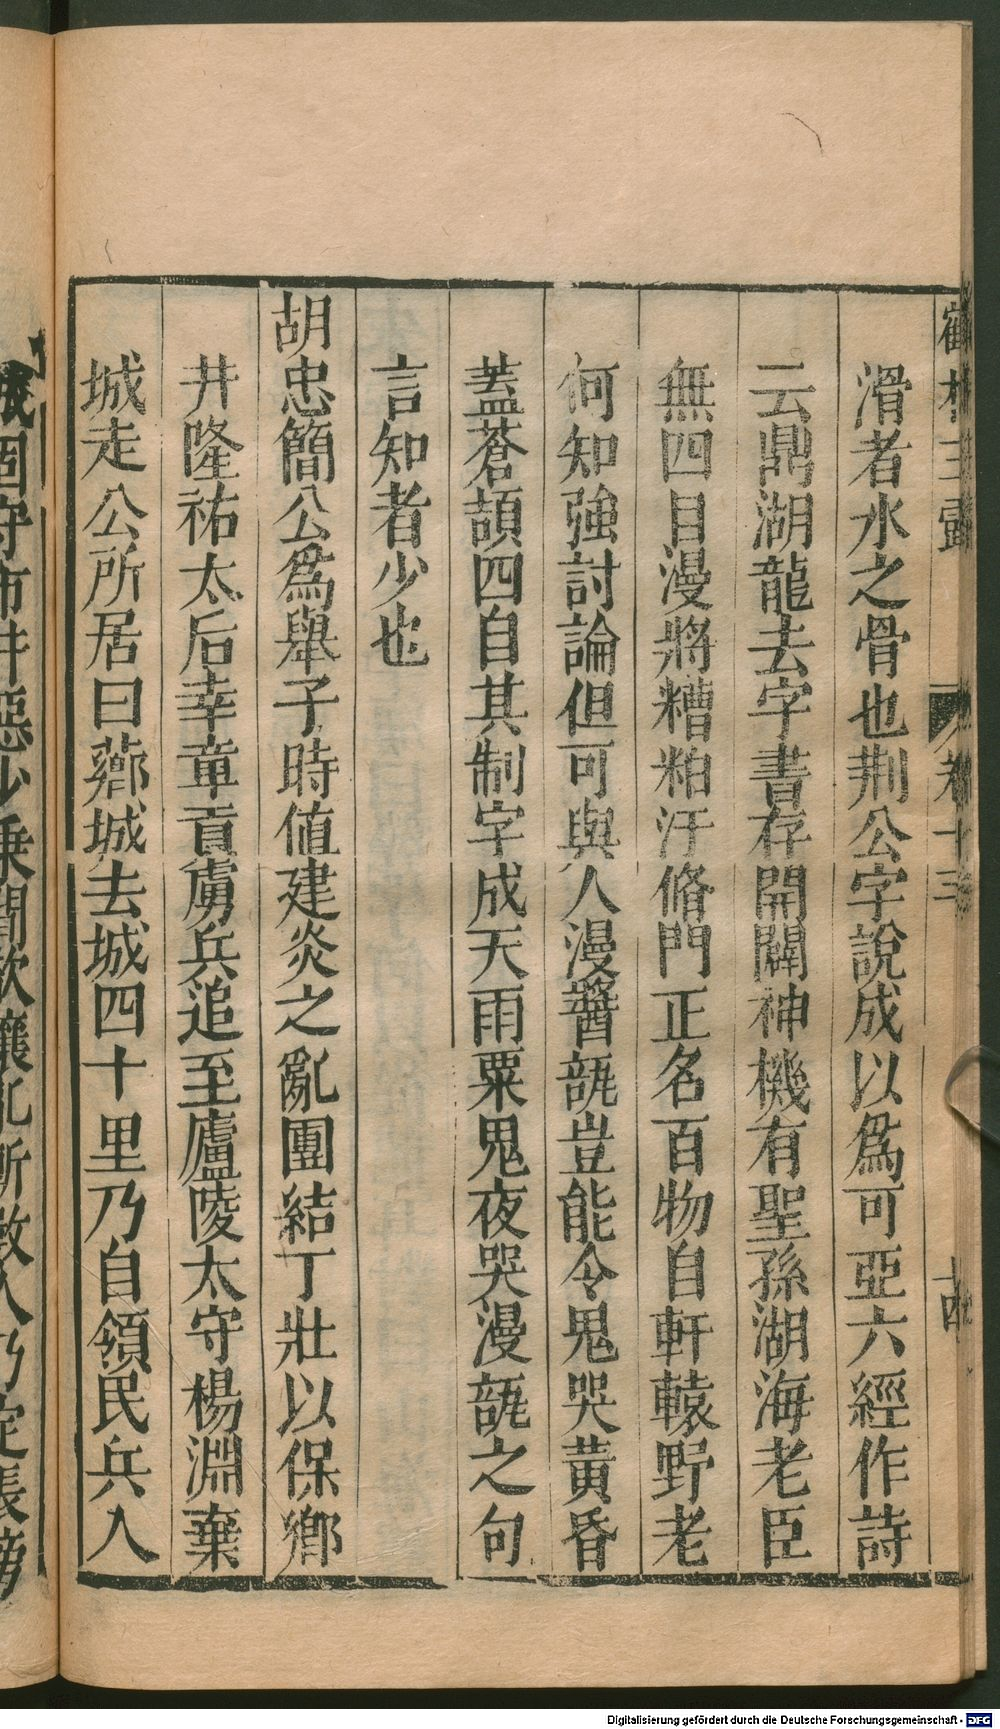 滑者水之骨也荆公字說成以爲可亞六經作詩
云鼎湖龍去字書存開闢神機有聖孫湖海老臣
無四目漫將糟粕汙脩門正名百物自軒轅野老
何知強討論但可與人漫醬瓿豈能令鬼哭黃昏
蓋蒼頡四目其制字成天雨粟鬼夜哭漫瓿之句
言知者少也
胡忠簡公爲舉子時値建炎之亂團結丁壯以保鄉
井隆祐太后幸章貢虜兵追至廬陵太守楊淵棄
城走公所居曰薌城去城四十里乃自領民兵入
卷十三
十四
Digitalisierung gefördert durch die Deutsche Forschungsgemeinschaft - DFG